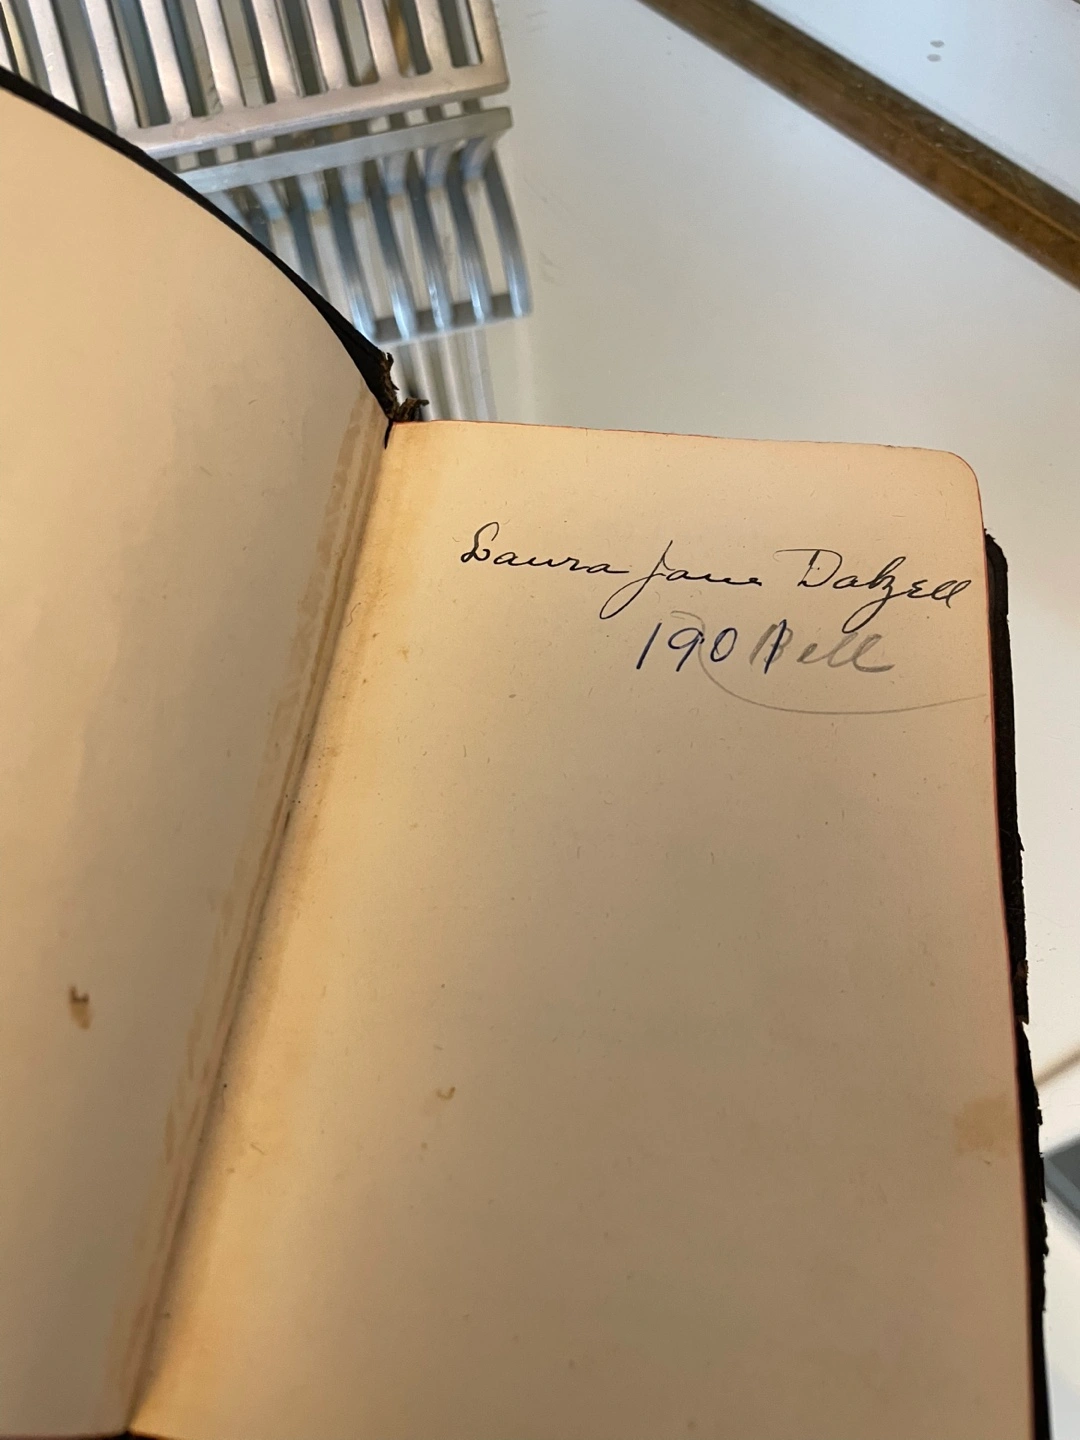 Laura Jane Dalzell
1901 Bell